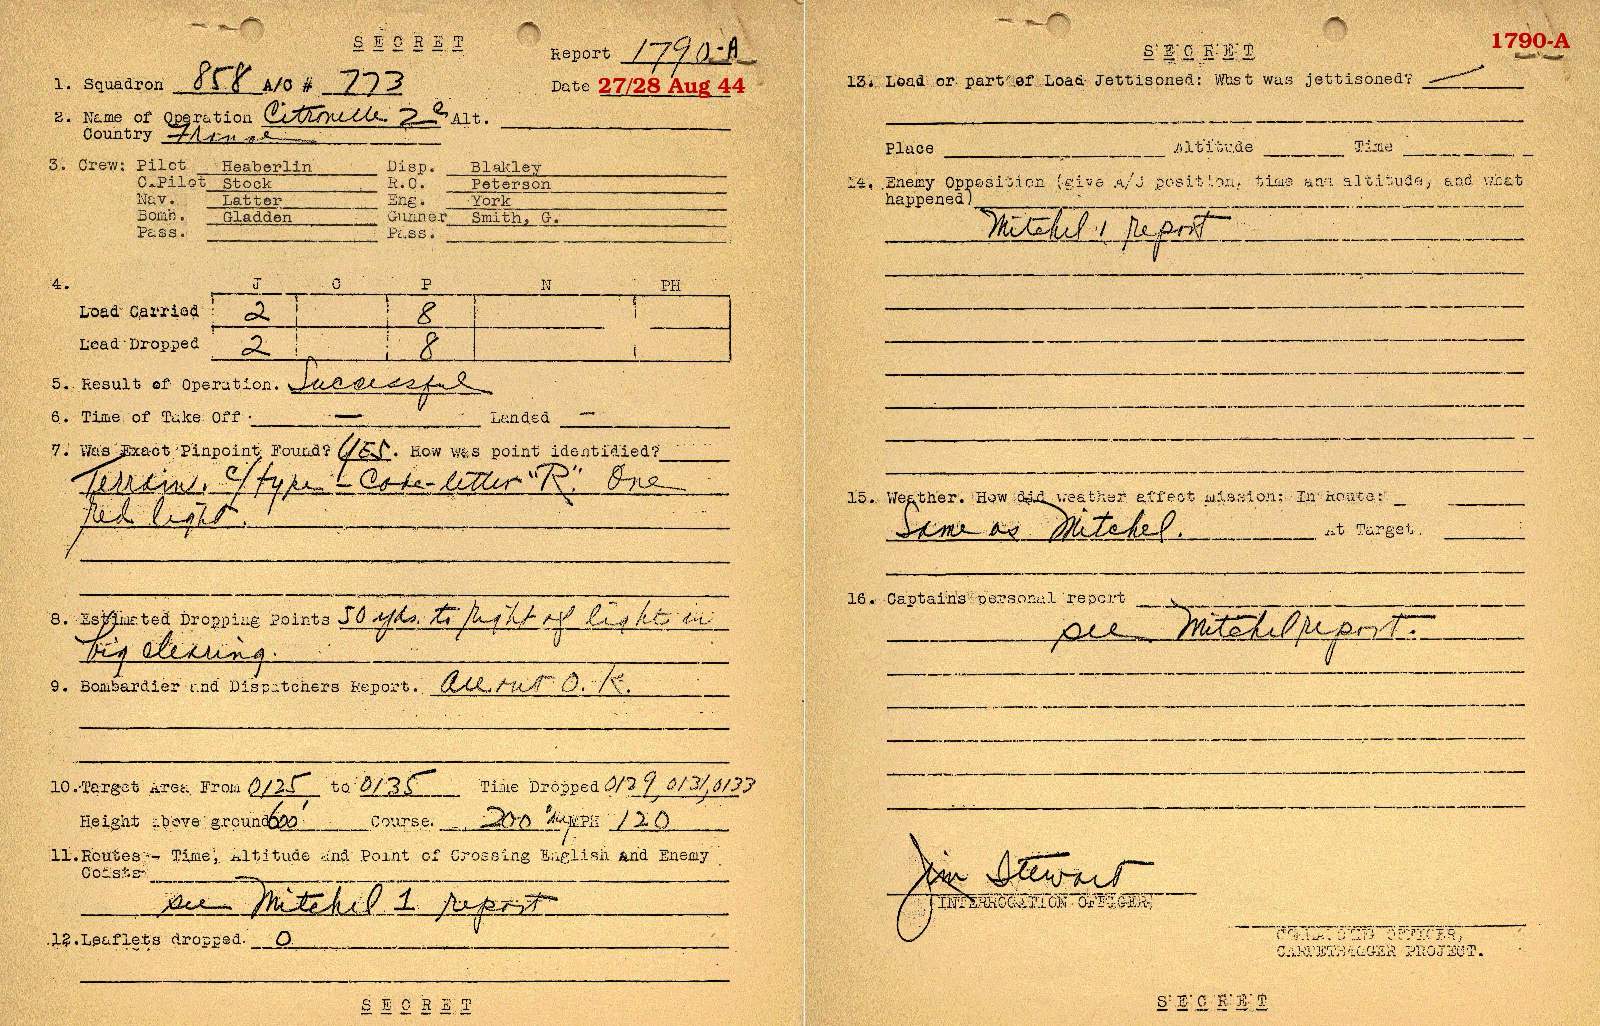 SECRET
Report 1790-A
1. Squadron 858 A/C # 773
Date 27/28 Aug 44
2. Name of Operation Citronelle 2 Alt.
Country France
3. Crew: Pilot Heaberlin Disp. Blakley
C.Pilot Stock R.O. Peterson
Nav. Latter Eng. York
Bomb. Gladden Gunner Smith, G.
Pass. Pass.
4. J C P N PH
Load Carried 2 8
Load Dropped 2 8
5. Result of Operation. Successful
6. Time of Take Off - Landed -
7. Was Exact Pinpoint Found? YES. How was point identidied?
Terrain. c/type - Code-letter "R". One
red light.
8. Estimated Dropping Points 50 yds. to right of lights in
big clearing.
9. Bombardier and Dispatchers Report. All out O.K.
10. Target Area From 0125 to 0135 Time Dropped 0129, 0131, 0133
Height above ground 600' Course. 200° MPH 120
11. Routes - Time, Altitude and Point of Crossing English and Enemy
Coasts
see Mitchel 1 report
12. Leaflets dropped. 0
SECRET
1790-A
SECRET
13. Load or part of Load Jettisoned: What was jettisoned?
Place Altitude Time
14. Enemy Opposition (give A/J position, time and altitude, and what
happened)
Mitchel 1 report
15. Weather. How did weather affect mission: In Route:
Same as Mitchel. At Target.
16. Captains personal report
see Mitchel report.
Jim Stewart
INTERROGATION OFFICER,
COMMANDING OFFICER,
CARPETBAGGER PROJECT.
SECRET